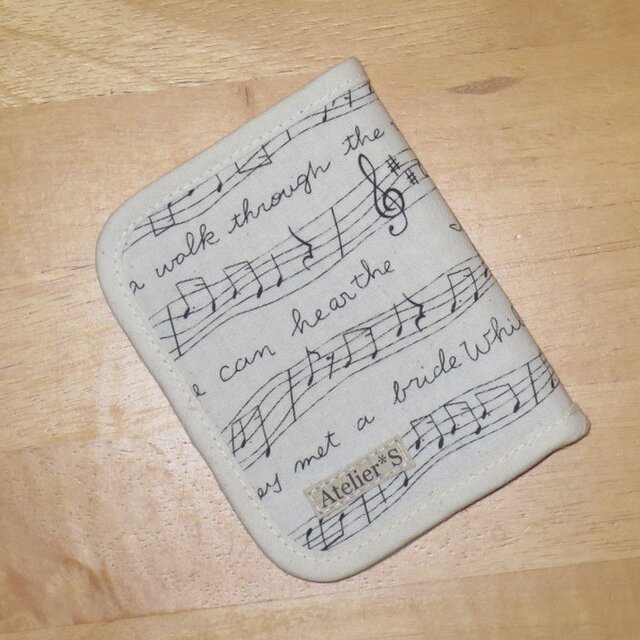 a walk through the
can hear the
met a bride Whi
Atelier*S